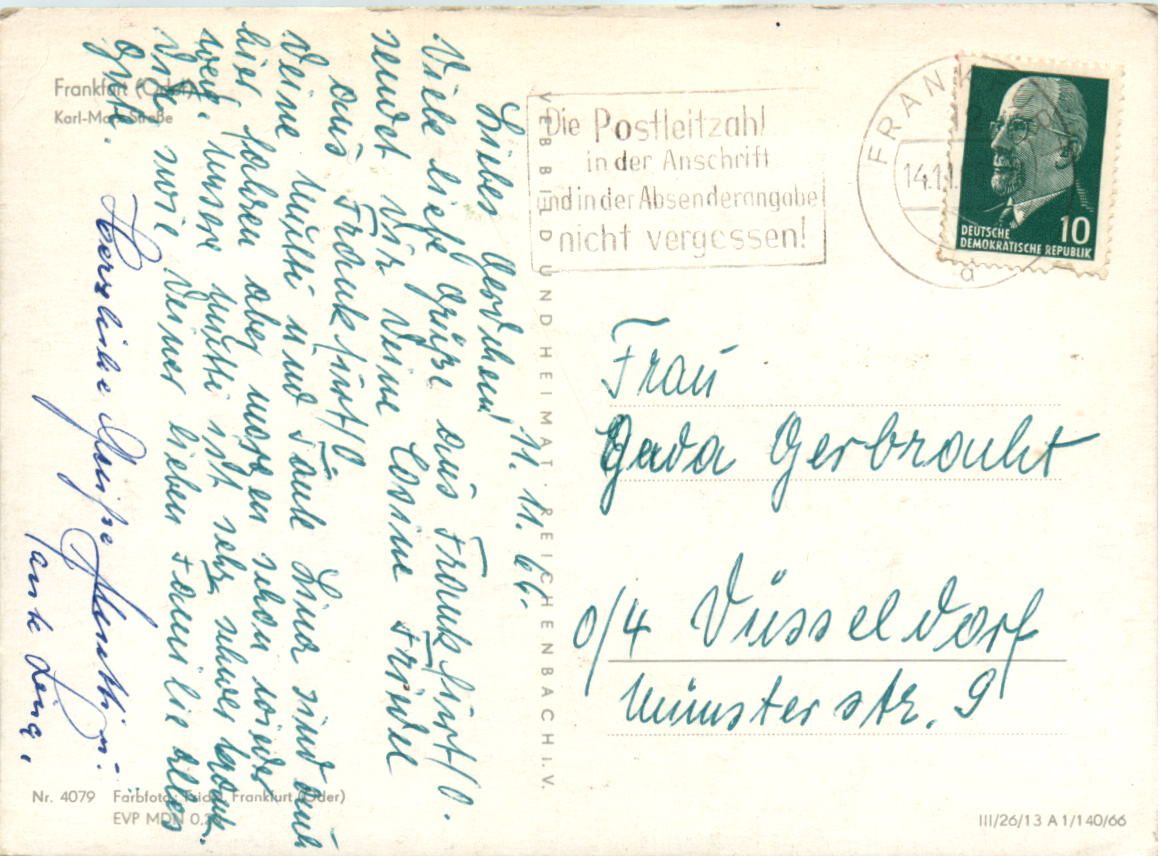 Frankfurt (Oder)
Karl-Marx-Straße
Die Postleitzahl
in der Anschrift
und in der Absenderangabe
nicht vergessen!
FRANK
14.11.
a
DEUTSCHE
DEMOKRATISCHE REPUBLIK
10
VEB BILD UND HEIMAT · REICHENBACH I. V.
11. 11. 66.
Liebes
Viele liebe Grüße aus Frankfurt/O.
sendet Dir Deine Cosine
aus Frankfurt/O.
Deine Mutti und Tante Lina sind auch
hier, fahren aber morgen schon wieder
weg. Unsere Mutti ist sehr schwer krank.
Dir sowie Deiner lieben Familie alles
Gute.
Herzliche Grüße Mutti
Tante Lina.
Frau
Gerda Gerbracht
0/4 Düsseldorf
Münsterstr. 9
Nr. 4079 Farbfoto: Frankfurt (Oder)
EVP MDN 0,20
III/26/13 A 1/140/66